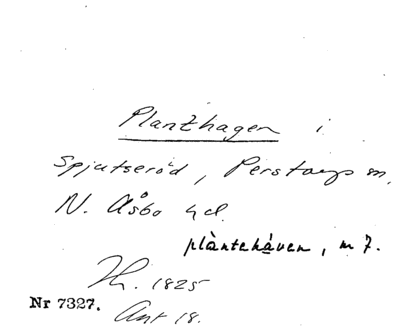 Planthagen i
Spjutseröd, Perstorps sn,
N. Åsbo hd.
plàntehåven, m 7.
Th. 1825
Nr 7327.
Ant 18.